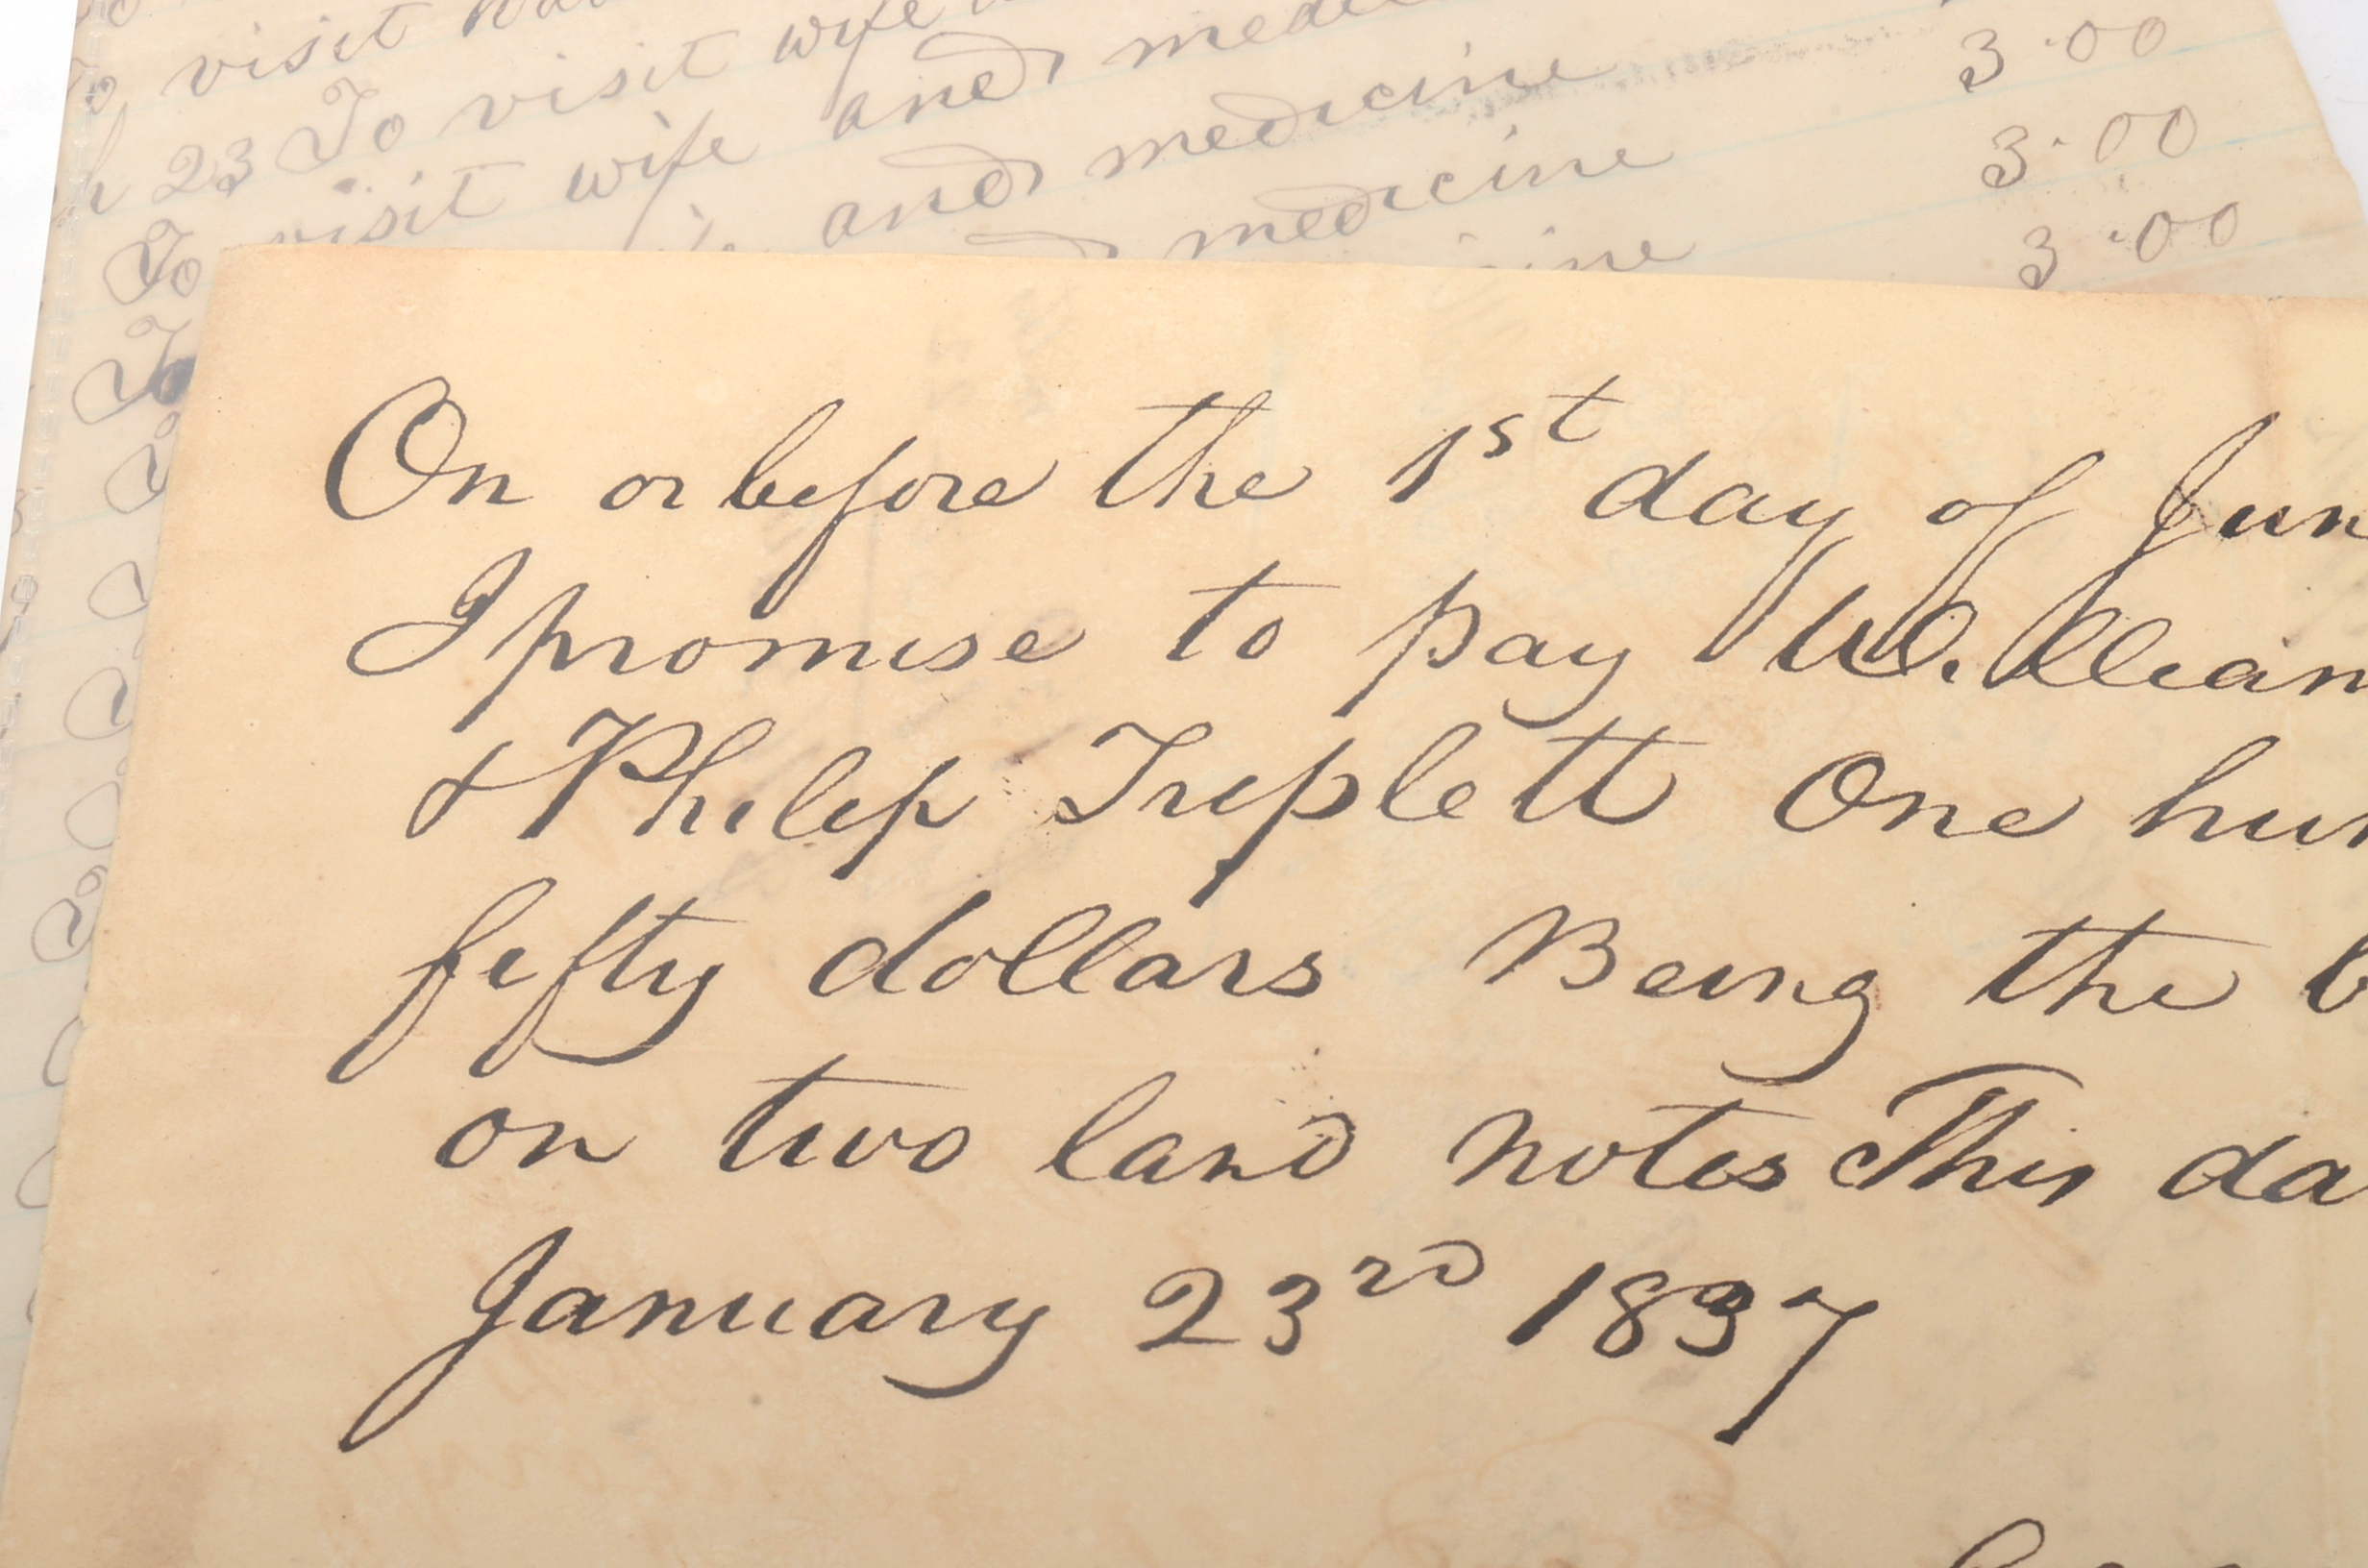 visit
To visit wife
23 To visit wife and
visit wife and medicine 3.00
To and medicine 3.00
To medicine 3.00
On or before the 1st day of Jun
I promise to pay William
& Philip Triplett One hun
fifty dollars Being the b
on two land notes This da
January 23rd 1837